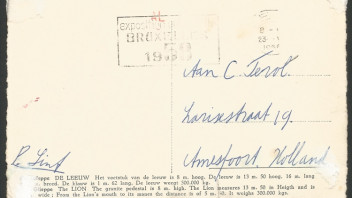 BRUXELLES
1958
Aan C. Terol.
Larixstraat 19.
Amersfoort, Holland
De Sint
DE LEEUW Het voetstuk van de leeuw is 8 m. hoog. De leeuw is 13 m. 50 hoog, 16 m. lang
breed. De klauw is 1 m. 62 lang. De leeuw weegt 300.000 kg.
The LION The granite pedestal is 8 m. high. The Lion measures 13 m. 50 in Heigth and is
wide: From the Lion's mouth to its
It weighs 300.000 kg.